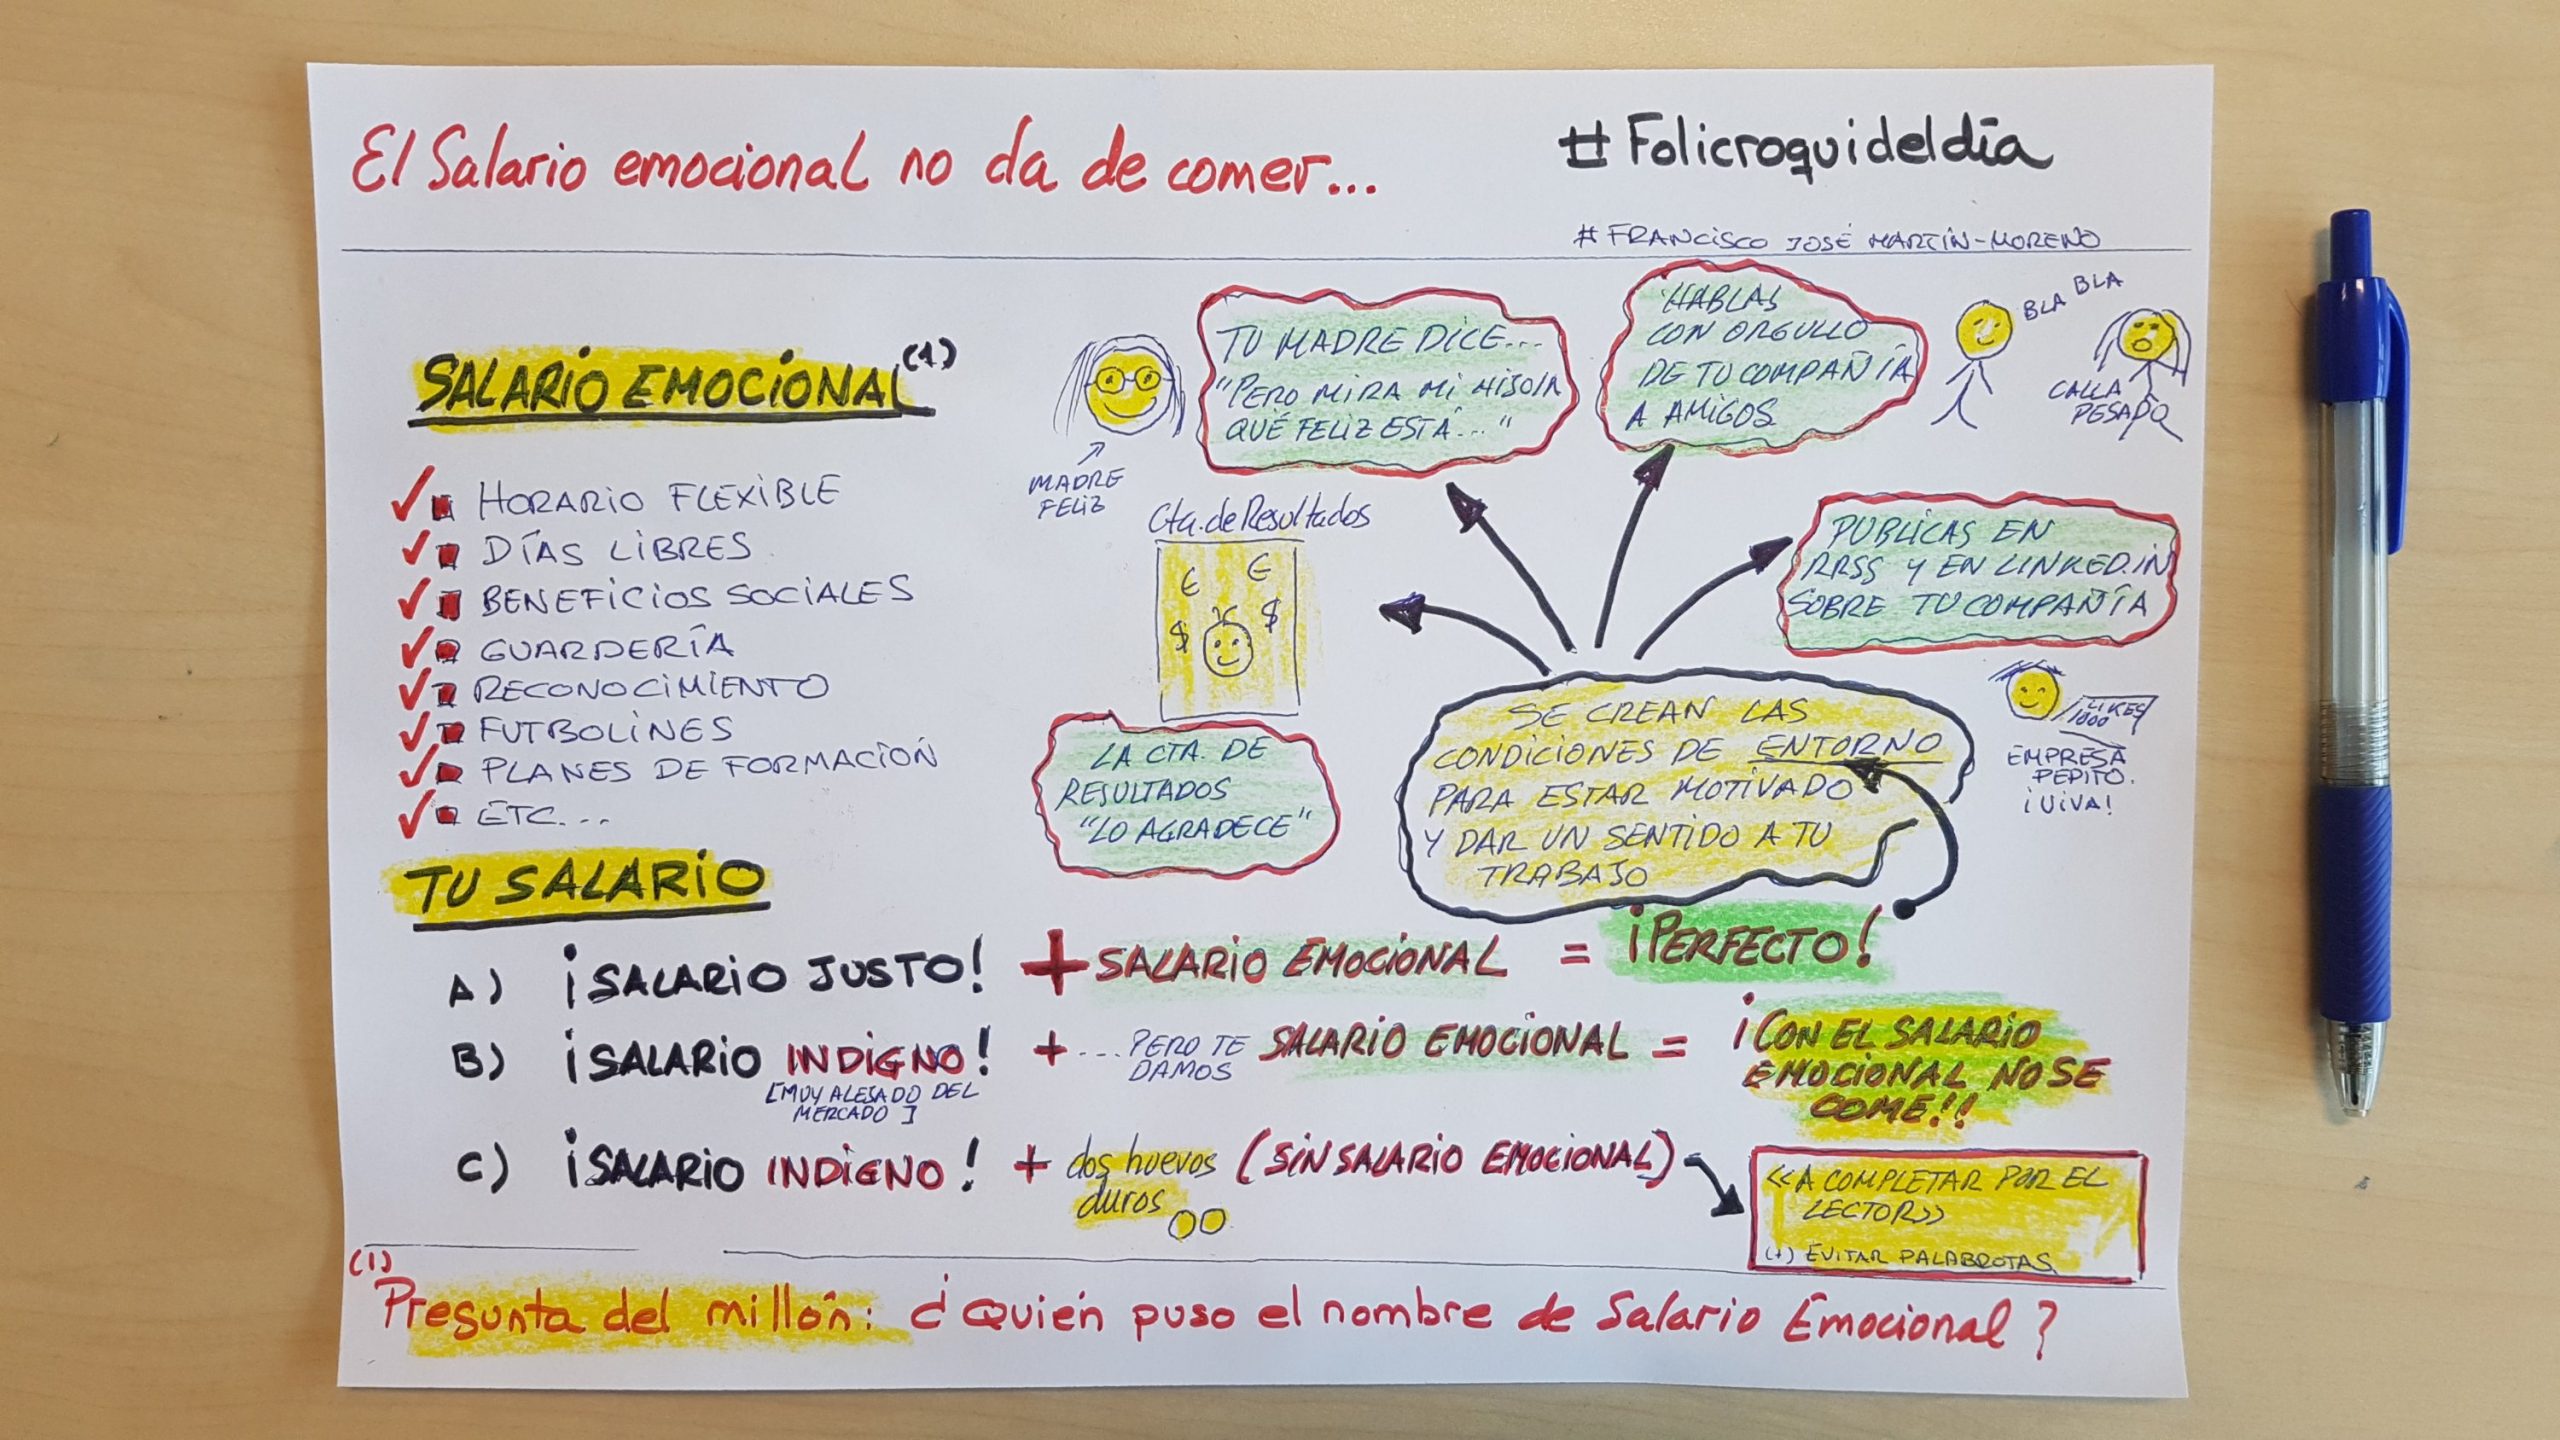 El Salario emocional no da de comer...
#Folicroquideldía
#FRANCISCO JOSÉ MARTÍN-MORENO
SALARIO EMOCIONAL (1)
HORARIO FLEXIBLE
DÍAS LIBRES
BENEFICIOS SOCIALES
GUARDERÍA
RECONOCIMIENTO
FUTBOLINES
PLANES DE FORMACIÓN
ETC...
MADRE
FELIZ
TU MADRE DICE...
"PERO MIRA MI HIJO/A
QUÉ FELIZ ESTÁ..."
HABLAS
CON ORGULLO
DE TU COMPAÑÍA
A AMIGOS
BLA BLA
CALLA
PESADO
Cta. de Resultados
€ €
$ $
LA CTA. DE
RESULTADOS
"LO AGRADECE"
PUBLICAS EN
RRSS Y EN LINKED.IN
SOBRE TU COMPAÑÍA
LIKES
1000
EMPRESA
PEPITO.
¡VIVA!
SE CREAN LAS
CONDICIONES DE ENTORNO
PARA ESTAR MOTIVADO
Y DAR UN SENTIDO A TU
TRABAJO
TU SALARIO
A) ¡SALARIO JUSTO! + SALARIO EMOCIONAL = ¡PERFECTO!
B) ¡SALARIO INDIGNO! + ...PERO TE DAMOS SALARIO EMOCIONAL =
[MUY ALEJADO DEL
MERCADO]
¡CON EL SALARIO
EMOCIONAL NO SE
COME!!
C) ¡SALARIO INDIGNO! + dos huevos duros (SIN SALARIO EMOCIONAL)
<<A COMPLETAR POR EL
LECTOR>>
(+) EVITAR PALABROTAS
(1)
Pregunta del millón: ¿Quién puso el nombre de Salario Emocional?